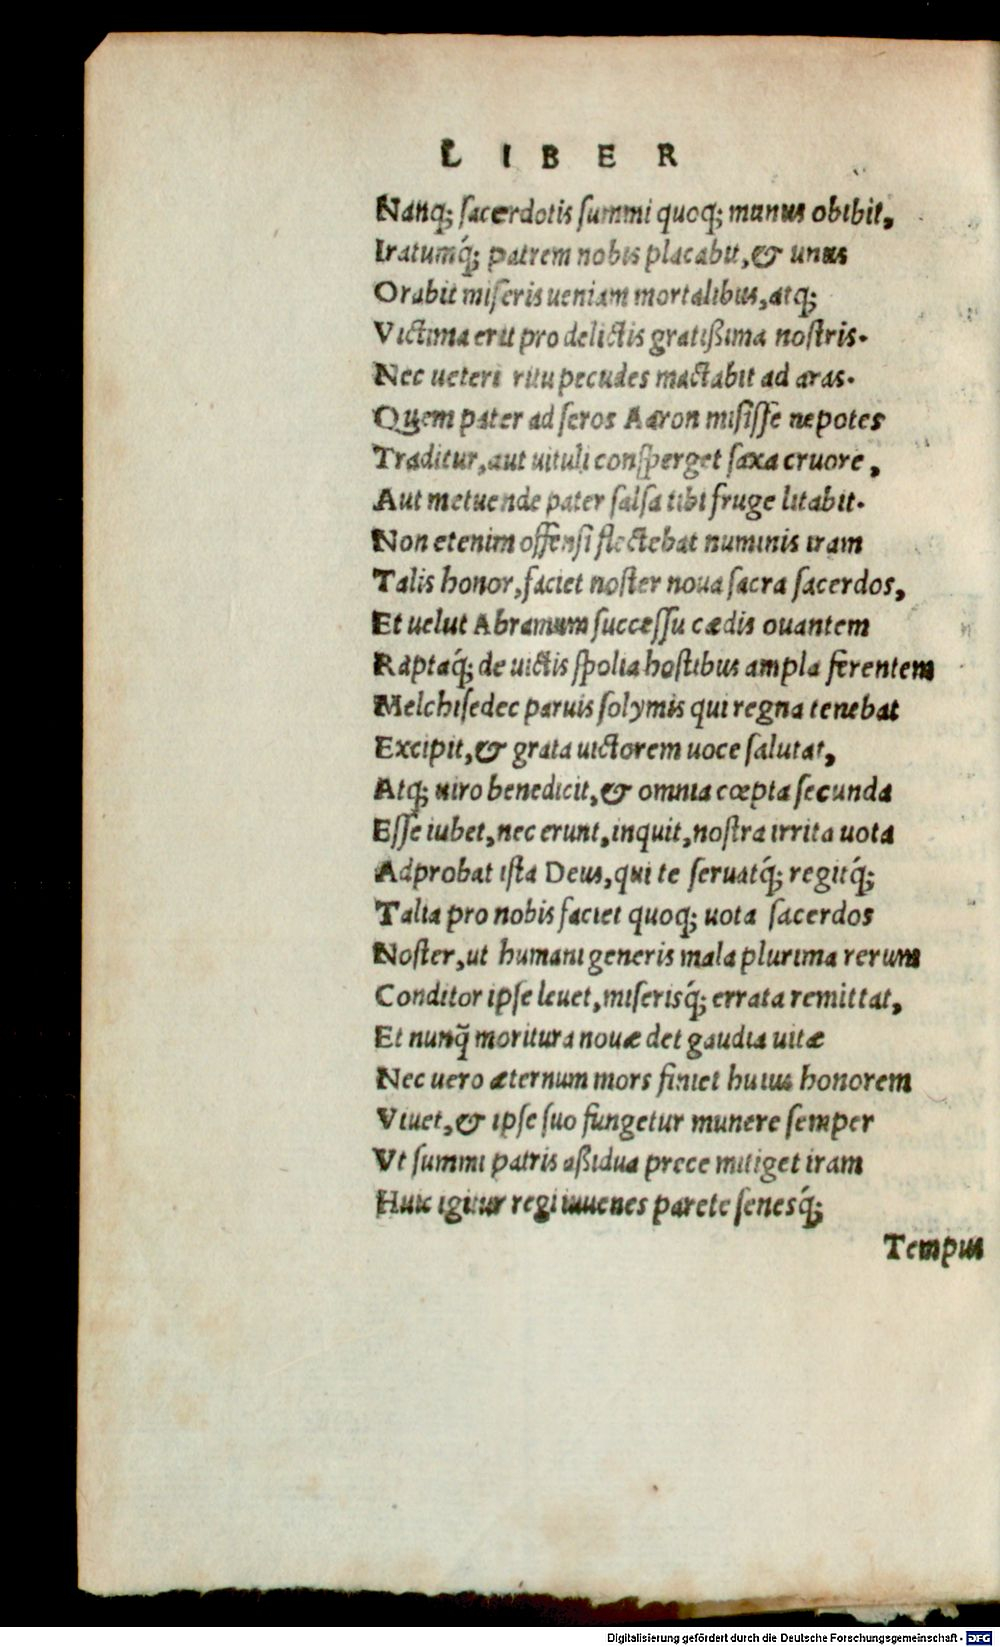 LIBER
Nanq; sacerdotis summi quoq; munus obibit,
Iratumq́; patrem nobis placabit, & unus
Orabit miseris ueniam mortalibus, atq;
Victima erit pro delictis gratißima nostris.
Nec ueteri ritu pecudes mactabit ad aras.
Quem pater ad seros Aaron misisse nepotes
Traditur, aut uituli consperget saxa cruore,
Aut metuende pater salsa tibi fruge litabit.
Non etenim offensi flectebat numinis iram
Talis honor, faciet noster noua sacra sacerdos,
Et uelut Abramum successu cædis ouantem
Raptaq́; de uictis spolia hostibus ampla ferentem
Melchisedec paruis solymis qui regna tenebat
Excipit, & grata uictorem uoce salutat,
Atq; uiro benedicit, & omnia cœpta secunda
Esse iubet, nec erunt, inquit, nostra irrita uota
Adprobat ista Deus, qui te seruatq́; regitq́;
Talia pro nobis faciet quoq; uota sacerdos
Noster, ut humani generis mala plurima rerum
Conditor ipse leuet, miserisq́; errata remittat,
Et nunq̃ moritura nouæ det gaudia uitæ
Nec uero æternum mors finiet huius honorem
Viuet, & ipse suo fungetur munere semper
Vt summi patris aßidua prece mitiget iram
Huic igitur regi iuuenes parete senesq́;
Tempus
Digitalisierung gefördert durch die Deutsche Forschungsgemeinschaft - DFG